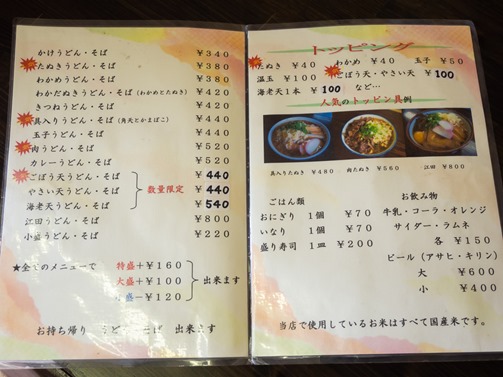 かけうどん・そば ￥340
たぬきうどん・そば ￥380
わかめうどん・そば ￥380
わかだぬきうどん・そば(わかめとたぬき) ￥420
きつねうどん・そば ￥420
具入りうどん・そば(角天とかまぼこ) ￥440
玉子うどん・そば ￥440
肉うどん・そば ￥520
カレーうどん・そば ￥520
ごぼう天うどん・そば ￥440
やさい天うどん・そば 数量限定 ￥440
海老天うどん・そば ￥540
江田うどん・そば ￥800
小盛うどん・そば ￥220
★全てのメニューで
特盛+￥160
大盛+￥100 出来ます
小盛-￥120
お持ち帰り うどん・そば 出来ます
トッピング
たぬき ￥40 わかめ ￥40 玉子 ￥50
温玉 ￥100 ごぼう天・やさい天 ￥100
海老天1本 ￥100 など…
人気のトッピング例
具入りたぬき ￥480 肉たぬき ￥560 江田 ￥800
ごはん類
おにぎり 1個 ￥70
いなり 1個 ￥70
盛り寿司 1皿 ￥200
お飲み物
牛乳・コーラ・オレンジ
サイダー・ラムネ
各 ￥150
ビール(アサヒ・キリン)
大 ￥600
小 ￥400
当店で使用しているお米はすべて国産米です。